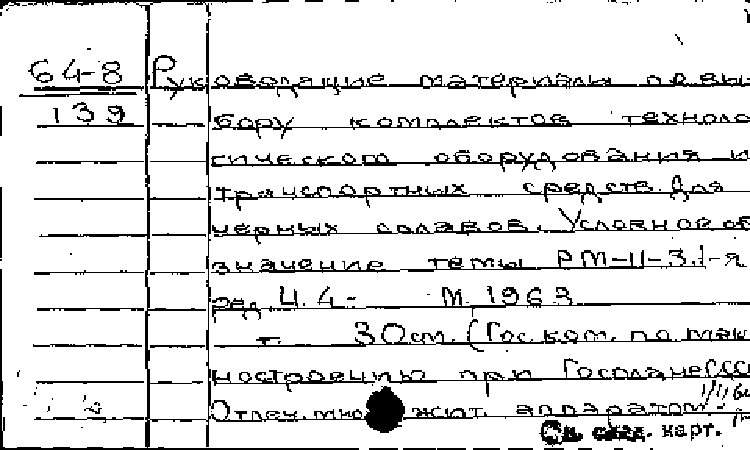 64-8 Руководящие материалы по вы-
139 бору комплектов техноло
гического оборудования и
транспортных средств для
черных сплавов. Условное об
значение темы РМ-11-3.1-я
ред. Ч. 4:- М. 1963
т. 30 см. (Гос. ком. по маш
ностроению при Госплане СССР
Отпеч. множит. аппаратом.
См. след. карт.